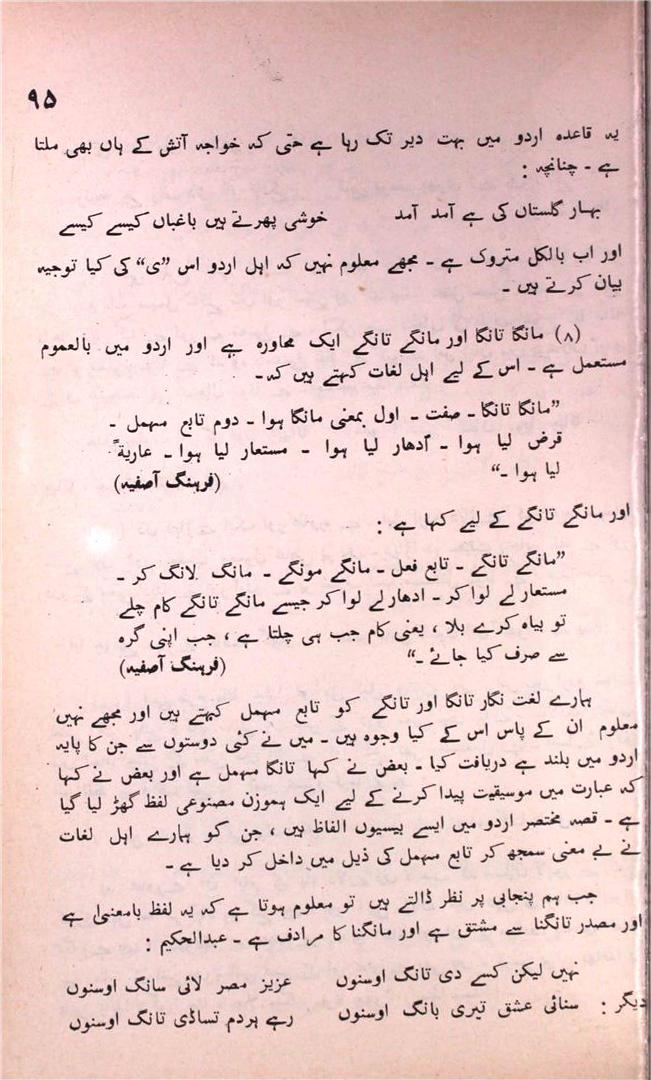 ۹۵
یہ قاعدہ اردو میں بہت دیر تک رہا ہے حتیٰ کہ خواجہ آتش کے ہاں بھی ملتا
ہے ۔ چنانچہ :
بہار گلستاں کی ہے آمد آمد خوشی پھرتے ہیں باغباں کیسے کیسے
اور اب بالکل متروک ہے ۔ مجھے معلوم نہیں کہ اہل اردو اس ”ی“ کی کیا توجیہ
بیان کرتے ہیں ۔
(۸) مانگا تانگا اور مانگے تانگے ایک محاورہ ہے اور اردو میں بالعموم
مستعمل ہے ۔ اس کے لیے اہل لغات کہتے ہیں کہ ۔
”مانگا تانگا ۔ صفت ۔ اول بمعنی مانگا ہوا ۔ دوم تابع مہمل ۔
قرض لیا ہوا ۔ اُدھار لیا ہوا ۔ مستعار لیا ہوا ۔ عاریۃً
لیا ہوا ۔“ (فرہنگ آصفیہ)
اور مانگے تانگے کے لیے کہا ہے :
”مانگے تانگے ۔ تابع فعل ۔ مانگے مونگے ۔ مانگ لانگ کر ۔
مستعار لے لوا کر ۔ ادھار لے لوا کر جیسے مانگے تانگے کام چلے
تو بیاہ کرے بلا ، یعنی کام جب ہی چلتا ہے ، جب اپنی گرہ
سے صرف کیا جائے ۔“ (فرہنگ آصفیہ)
ہمارے لغت نگار تانگا اور تانگے کو تابع مہمل کہتے ہیں اور مجھے نہیں
معلوم ان کے پاس اس کے کیا وجوہ ہیں ۔ میں نے کئی دوستوں سے جن کا پایہ
اردو میں بلند ہے دریافت کیا ۔ بعض نے کہا تانگا مہمل ہے اور بعض نے کہا
کہ عبارت میں موسیقیت پیدا کرنے کے لیے ایک ہموزن مصنوعی لفظ گھڑ لیا گیا
ہے ۔ قصہ مختصر اردو میں ایسے بیسیوں الفاظ ہیں ، جن کو ہمارے اہل لغات
نے بے معنی سمجھ کر تابع مہمل کی ذیل میں داخل کر دیا ہے ۔
جب ہم پنجابی پر نظر ڈالتے ہیں تو معلوم ہوتا ہے کہ یہ لفظ بامعنیٰ ہے
اور مصدر تانگنا سے مشتق ہے اور مانگنا کا مرادف ہے ۔ عبدالحکیم :
نہیں لیکن کسے دی تانگ اوسنوں عزیز مصر لائی سانگ اوسنوں
دیگر : سنائی عشق تیری بانگ اوسنوں رہے ہردم تساڈی تانگ اوسنوں